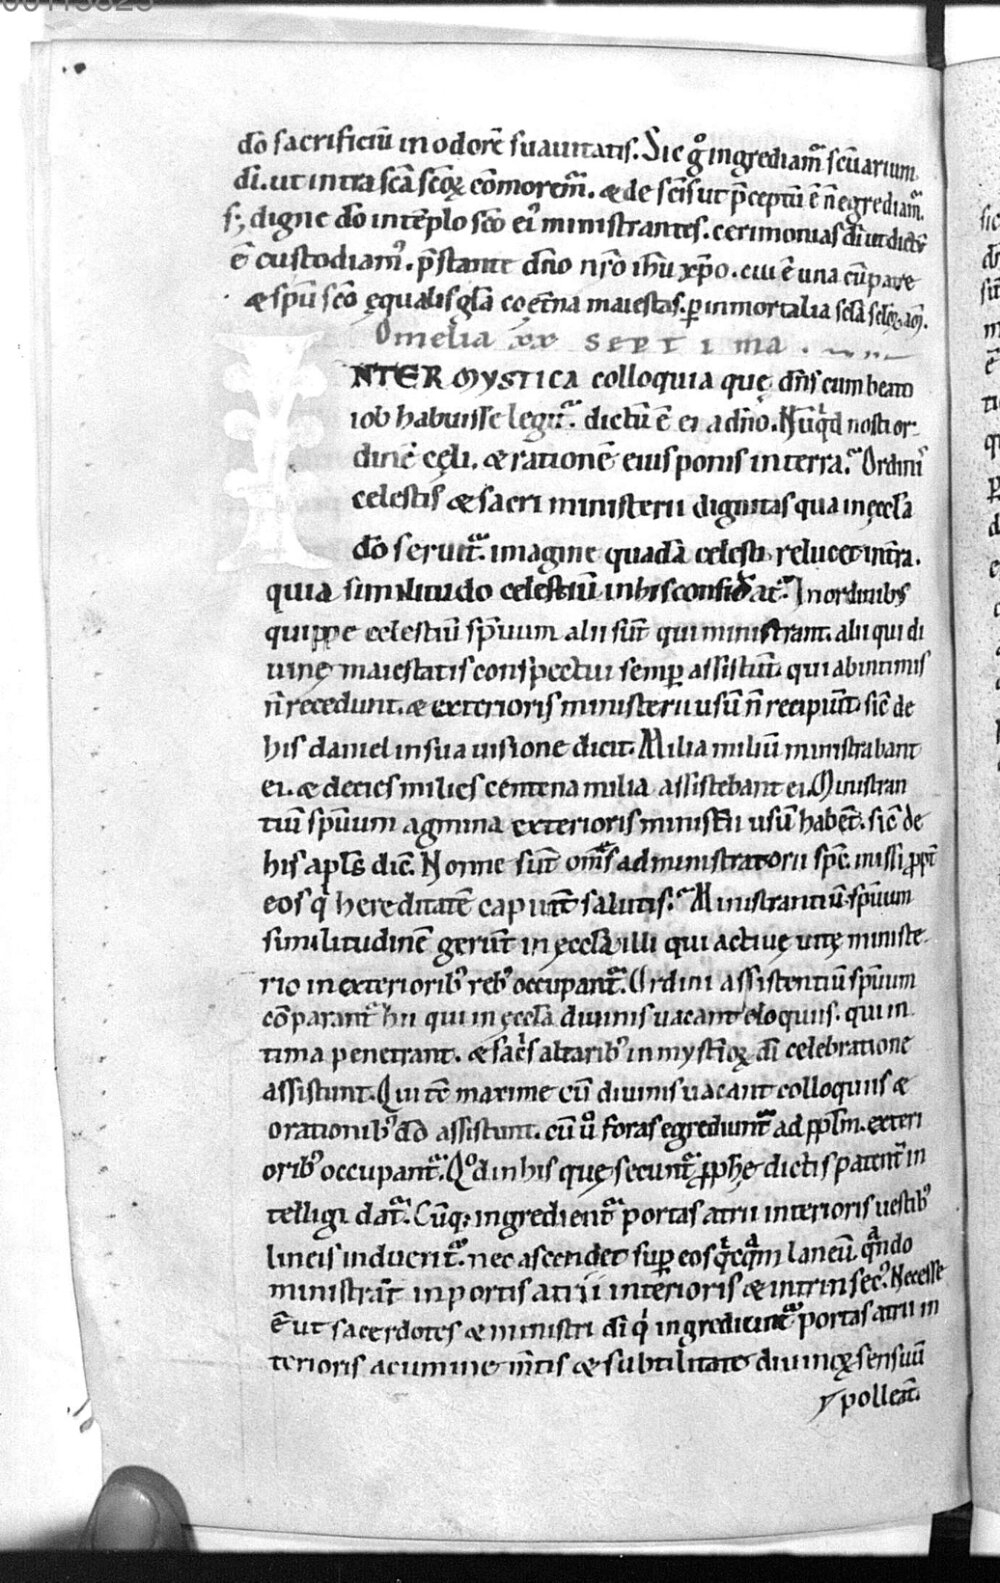 dõ sacrificiũ in odorẽ suauitatis. Sic gͦ ingrediam̃ scũarium
dĩ. ut intra scã scõꝝ cõmorem̃. & de scĩs ut p̃ceptũ ẽ ñ egrediam̃.
s; digne dõ in tẽplo scõ eiꝰ ministrantes. cerimonias dĩ ut dictũ
ẽ custodiamꝰ. p̃stante dñõ nrõ ihũ xp̃o. cui ẽ una cũ patre
& sp̃ũ scõ ęqualis gl̃a coęt̃na maiestas. ꝑ inmortalia scl̃a scl̃oꝝ. am̃.
Omelia xx septima.
INTER Mystica colloquia quę dñs cum beato
iob habuisse legit̃. dictũ ẽ ei a dñõ. Nũqͥd nosti or
dinẽ cęli. & rationẽ eius ponis in terra. Ordinis
celestis & sacri ministerii dignitas qua in ęccl̃a
dõ seruit̃. imagine quadã celesti relucet in t̃ra.
quia similitudo celestiũ in his considerat̃. In ordinibꝰ
quippe celestiũ sp̃uum alii sũt qui ministrant. alii qui di
uinę maiestatis conspectui semꝑ assistũt. qui ab intimis
ñ recedunt. & exterioris ministerii usũ ñ recipiũt. sic̃ de
his daniel in sua uisione dicit. Milia miliũ ministrabant
ei. & decies milies centena milia assistebant ei. Ministran
tiũ sp̃uum agmina exterioris minist̃ii usũ habent̃. sic̃ de
his apl̃s dic̃. Nonne sũt om̃s administratorii sp̃c. missi ꝓpt̃
eos qͥ hereditatẽ capiunt̃ salutis. Ministrantiũ sp̃uum
similitudinẽ gerũt in ęccl̃a illi qui actiuę uitę ministe
rio in exterioribꝰ rebꝰ occupant̃. Ordini assistentiũ sp̃uum
cõparant̃ hii qui in ęccl̃a diuinis uacant eloquiis. qui in
tima penetrant. & sac̃s altaribꝰ in myst̃ioꝝ dĩ celebratione
assistunt. Qui tẽ maxime cũ diuinis uacant colloquiis &
orationibꝰ dõ assistunt. cũ uͦ foras egrediunt̃ ad ppl̃m. exteri
oribꝰ occupant̃. Qͦd in his quę secunt̃ ꝓph̃ę dictis patent̃ in
telligi dat̃. Cũq; ingredient̃ portas atrii interioris uestibꝰ
lineis induent̃. nec ascendet suꝑ eos qͥcqͣm laneũ. qͣndo
ministrãt in portis atrii interioris & intrinsecꝰ. Necesse
ẽ ut sacerdotes & ministri dĩ qͥ ingrediunt̃ portas atrii in
terioris acumine m̃tis & subtilitate diuinoꝝ sensuũ
polleãt.